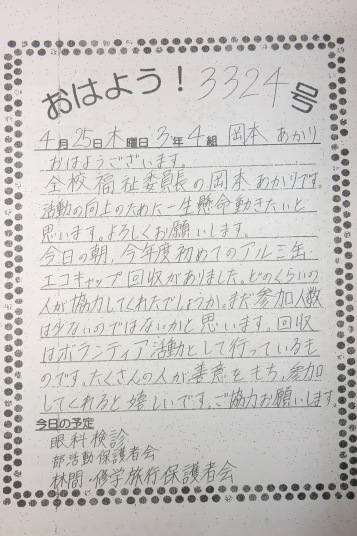 おはよう！3324号
4月25日木曜日3年4組 岡本 あかり
おはようございます。
全校福祉委員長の岡本あかりです。
活動の向上のために一生懸命動きたいと
思います。よろしくお願いします。
今日の朝、今年度初めてのアルミ缶・
エコキャップ回収がありました。どのくらいの
人が協力してくれたでしょうか。まだ参加人数
は少ないのではないかと思います。回収
はボランティア活動として行っているも
のです。たくさんの人が善意をもち、参加
してくれると嬉しいです。ご協力お願いします。
今日の予定
眼科検診
部活動保護者会
林間・修学旅行保護者会